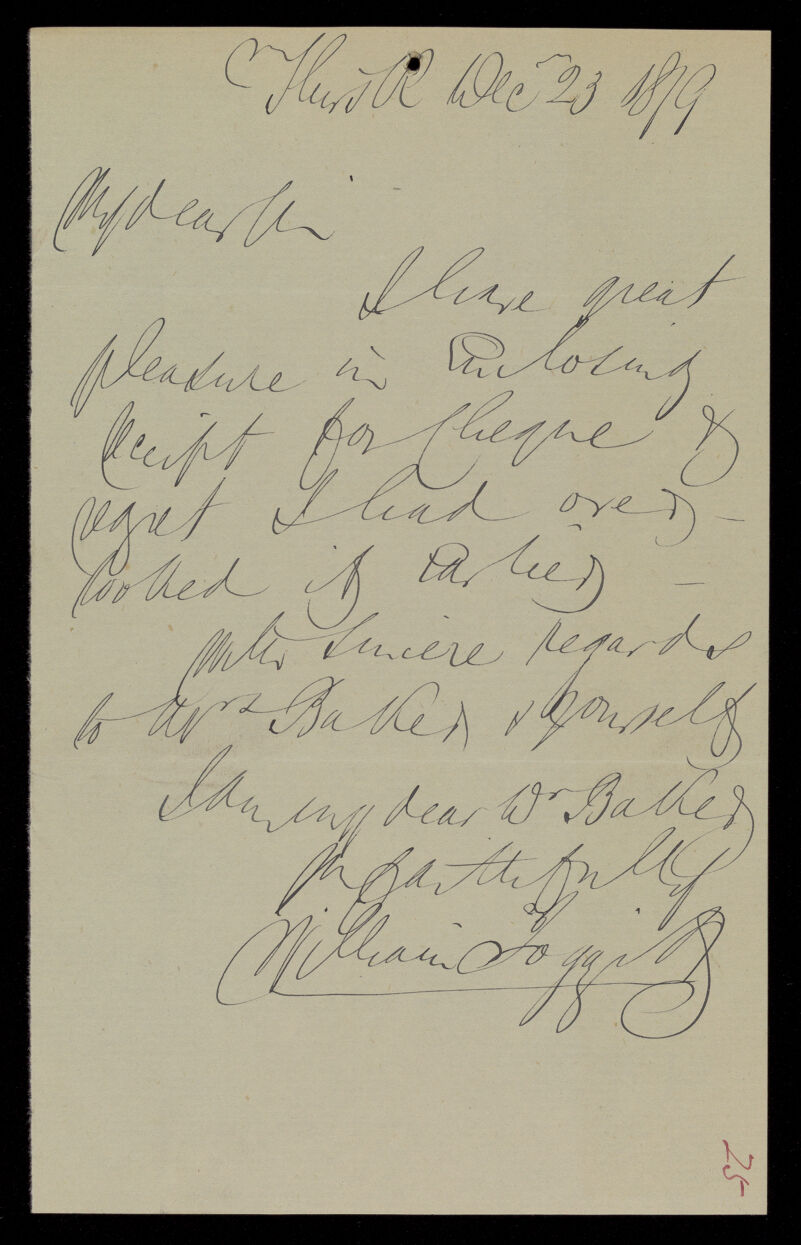 Thirsk Dec 23 1879
My dear Sir
I have great
pleasure in Enclosing
receipt for Cheque &
regret I had over-
looked it Earlier —
With Sincere regards
to Mrs Baker & yourself
I am my dear Dr Baker
Yrs faithfully
William Foggitt
25